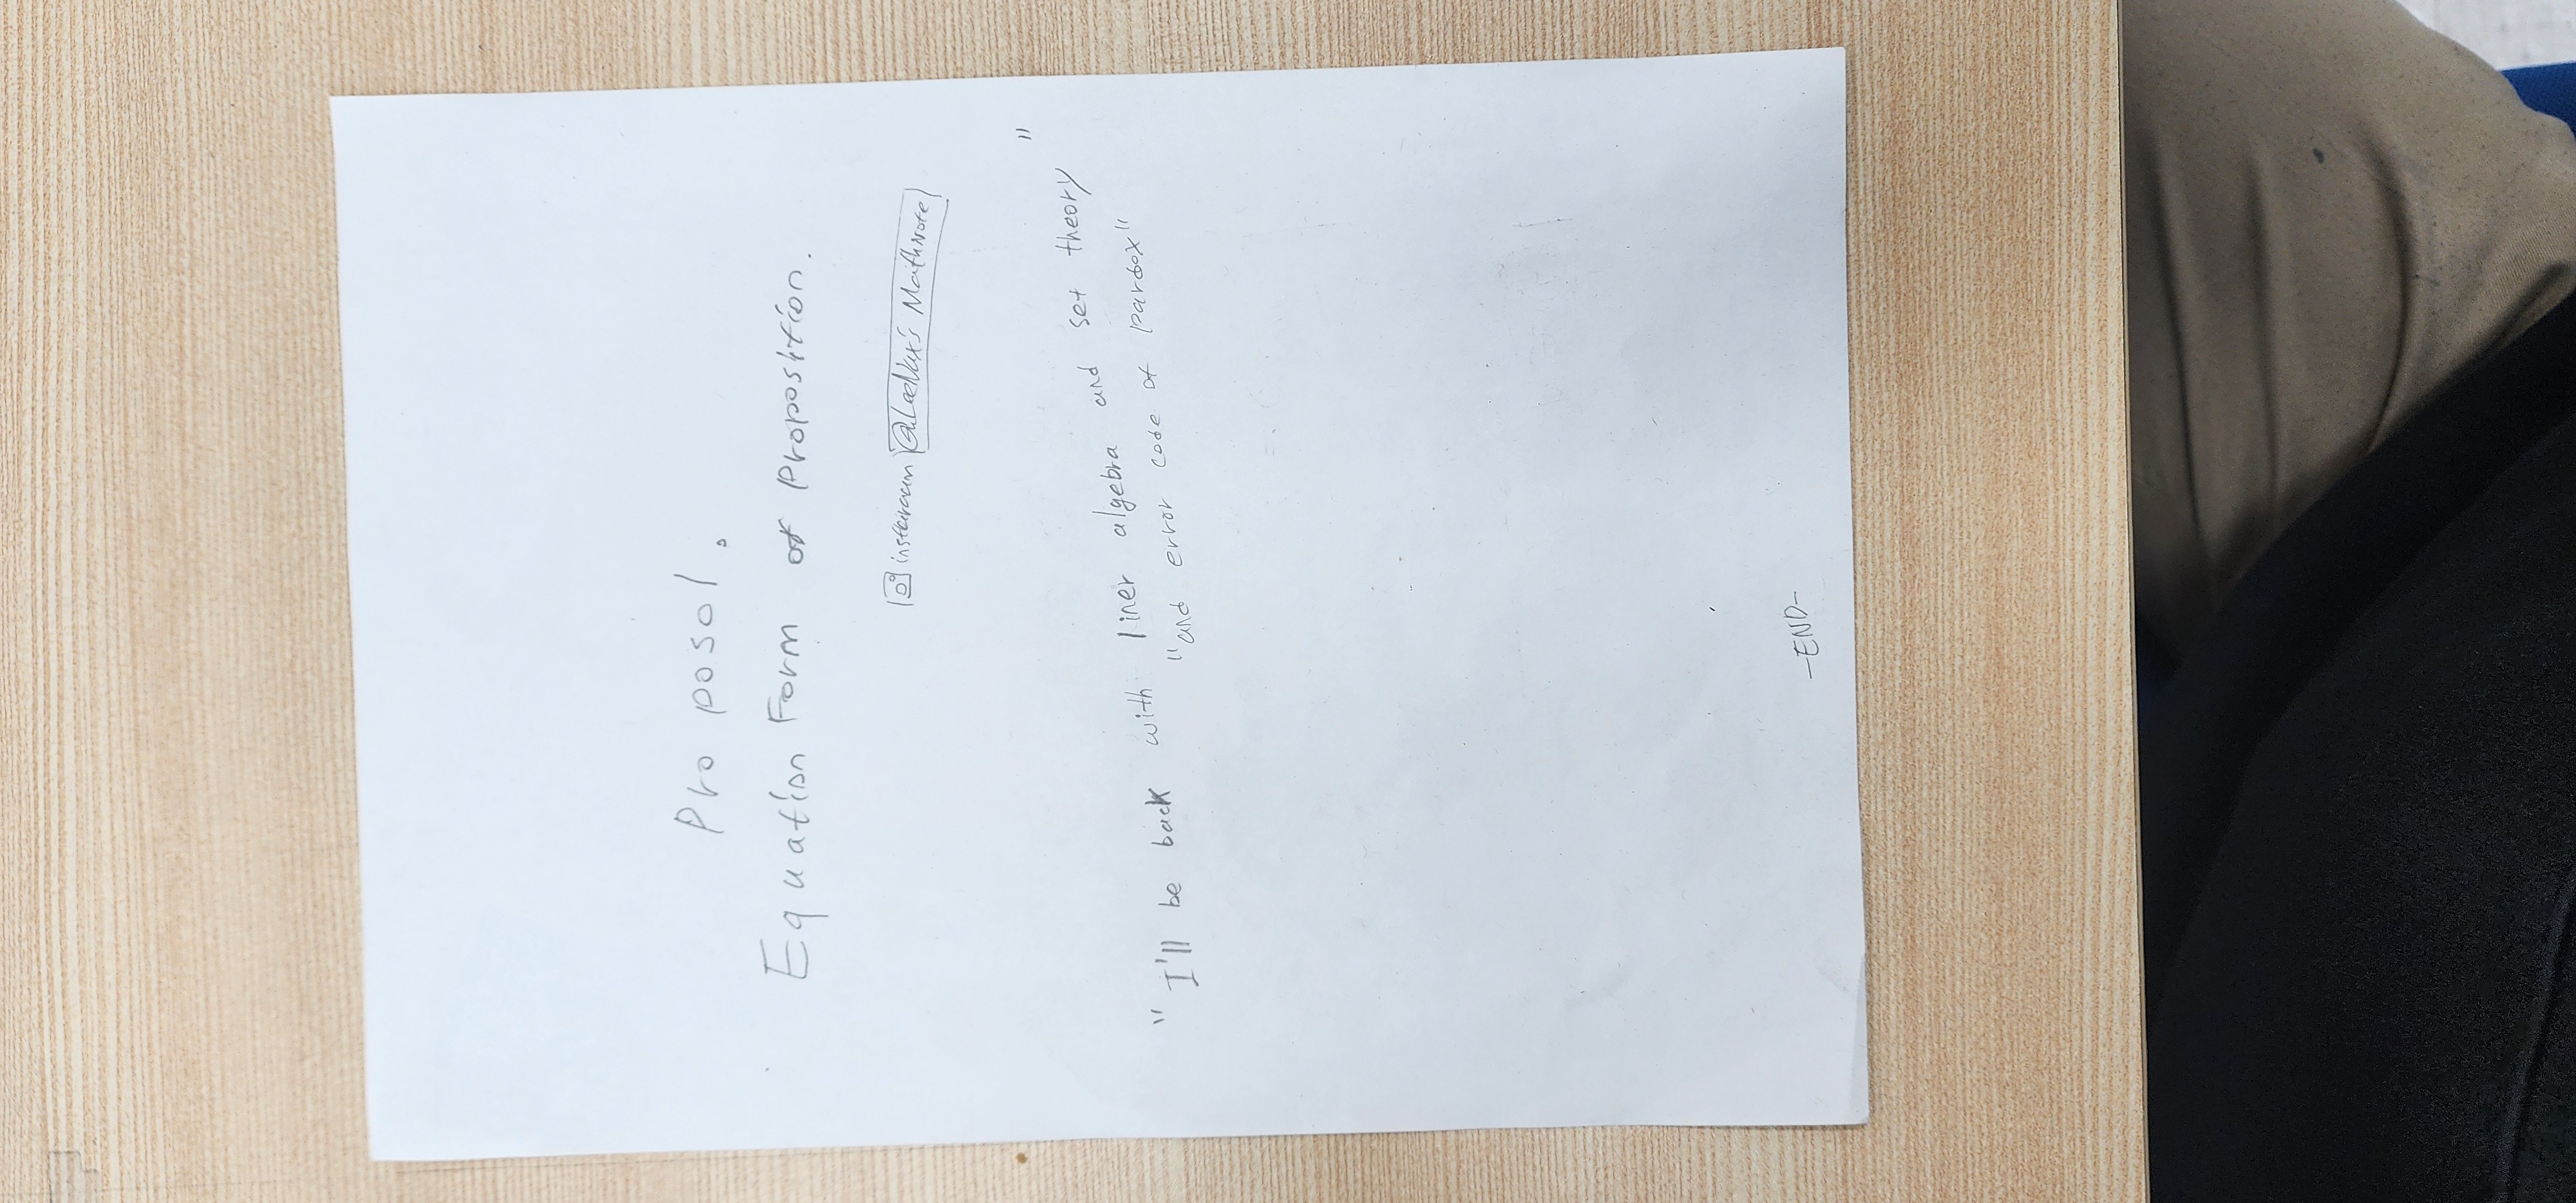 Proposol.
Equation Form of Proposition.
instaraum @LeeNux's MathNote
"I'll be back with liner algebra and set theory"
"and error code of pardox"
-END-